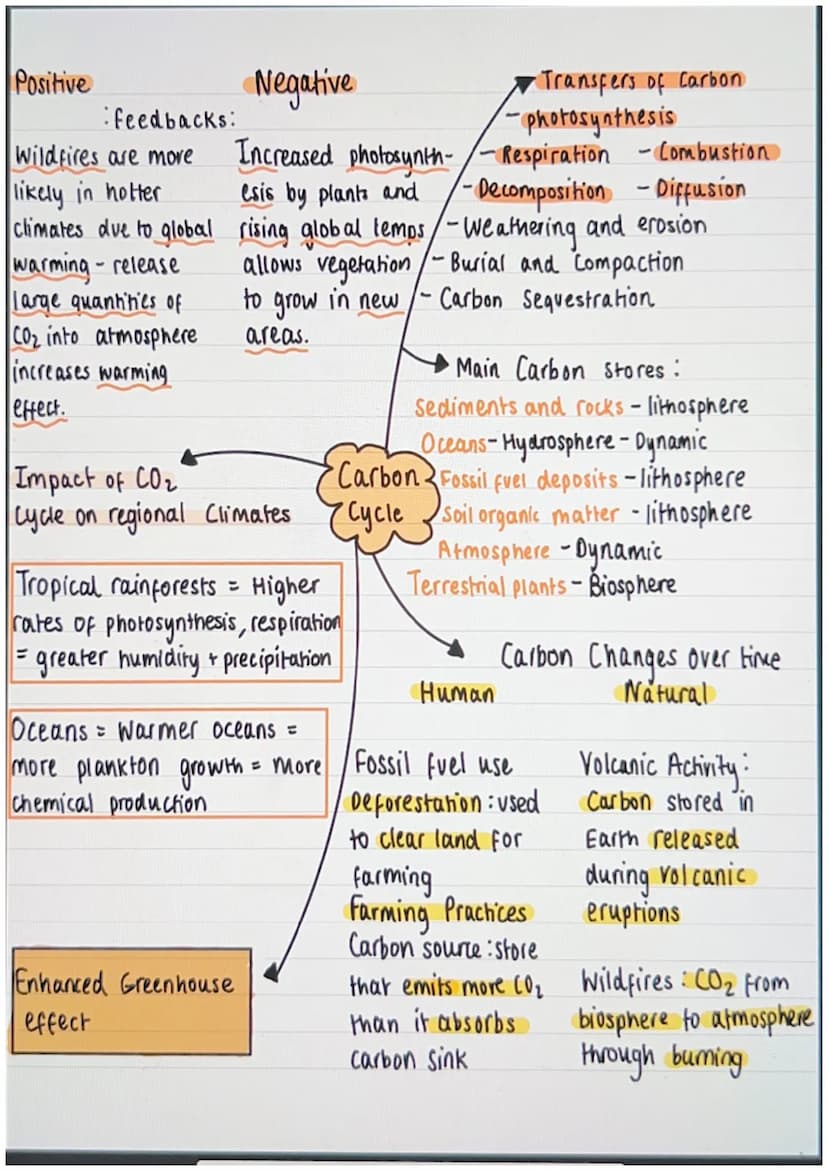 Positive
Negative
: feedbacks :
Wildfires are more
likely in hotter
climates due to global
warming - release
large quantities of
CO2 into atmosphere
increases warming
effect.
Increased photosynth-
esis by plants and
rising global temps
allows vegetation
to grow in new
areas.
Transfers of Carbon
- photosynthesis
- Respiration - Combustion
- Decomposition - Diffusion
- Weathering and erosion
- Burial and Compaction
- Carbon Sequestration
Main Carbon stores :
Sediments and rocks - lithosphere
Oceans - Hydrosphere - Dynamic
Fossil fuel deposits - lithosphere
Soil organic matter - lithosphere
Atmosphere - Dynamic
Terrestrial plants - Biosphere
Carbon
Cycle
Impact of CO2
Cycle on regional Climates
Tropical rainforests = Higher
rates of photosynthesis, respiration
= greater humidity + precipitation
Oceans = Warmer oceans =
more plankton growth = More
chemical production
Enhanced Greenhouse
effect
Carbon Changes over time
Human
Natural
Fossil fuel use
Deforestation : used
to clear land for
farming
Farming Practices
Carbon source : store
that emits more CO2
than it absorbs
carbon sink
Volcanic Activity :
Carbon stored in
Earth released
during volcanic
eruptions
Wildfires : CO2 from
biosphere to atmosphere
through burning